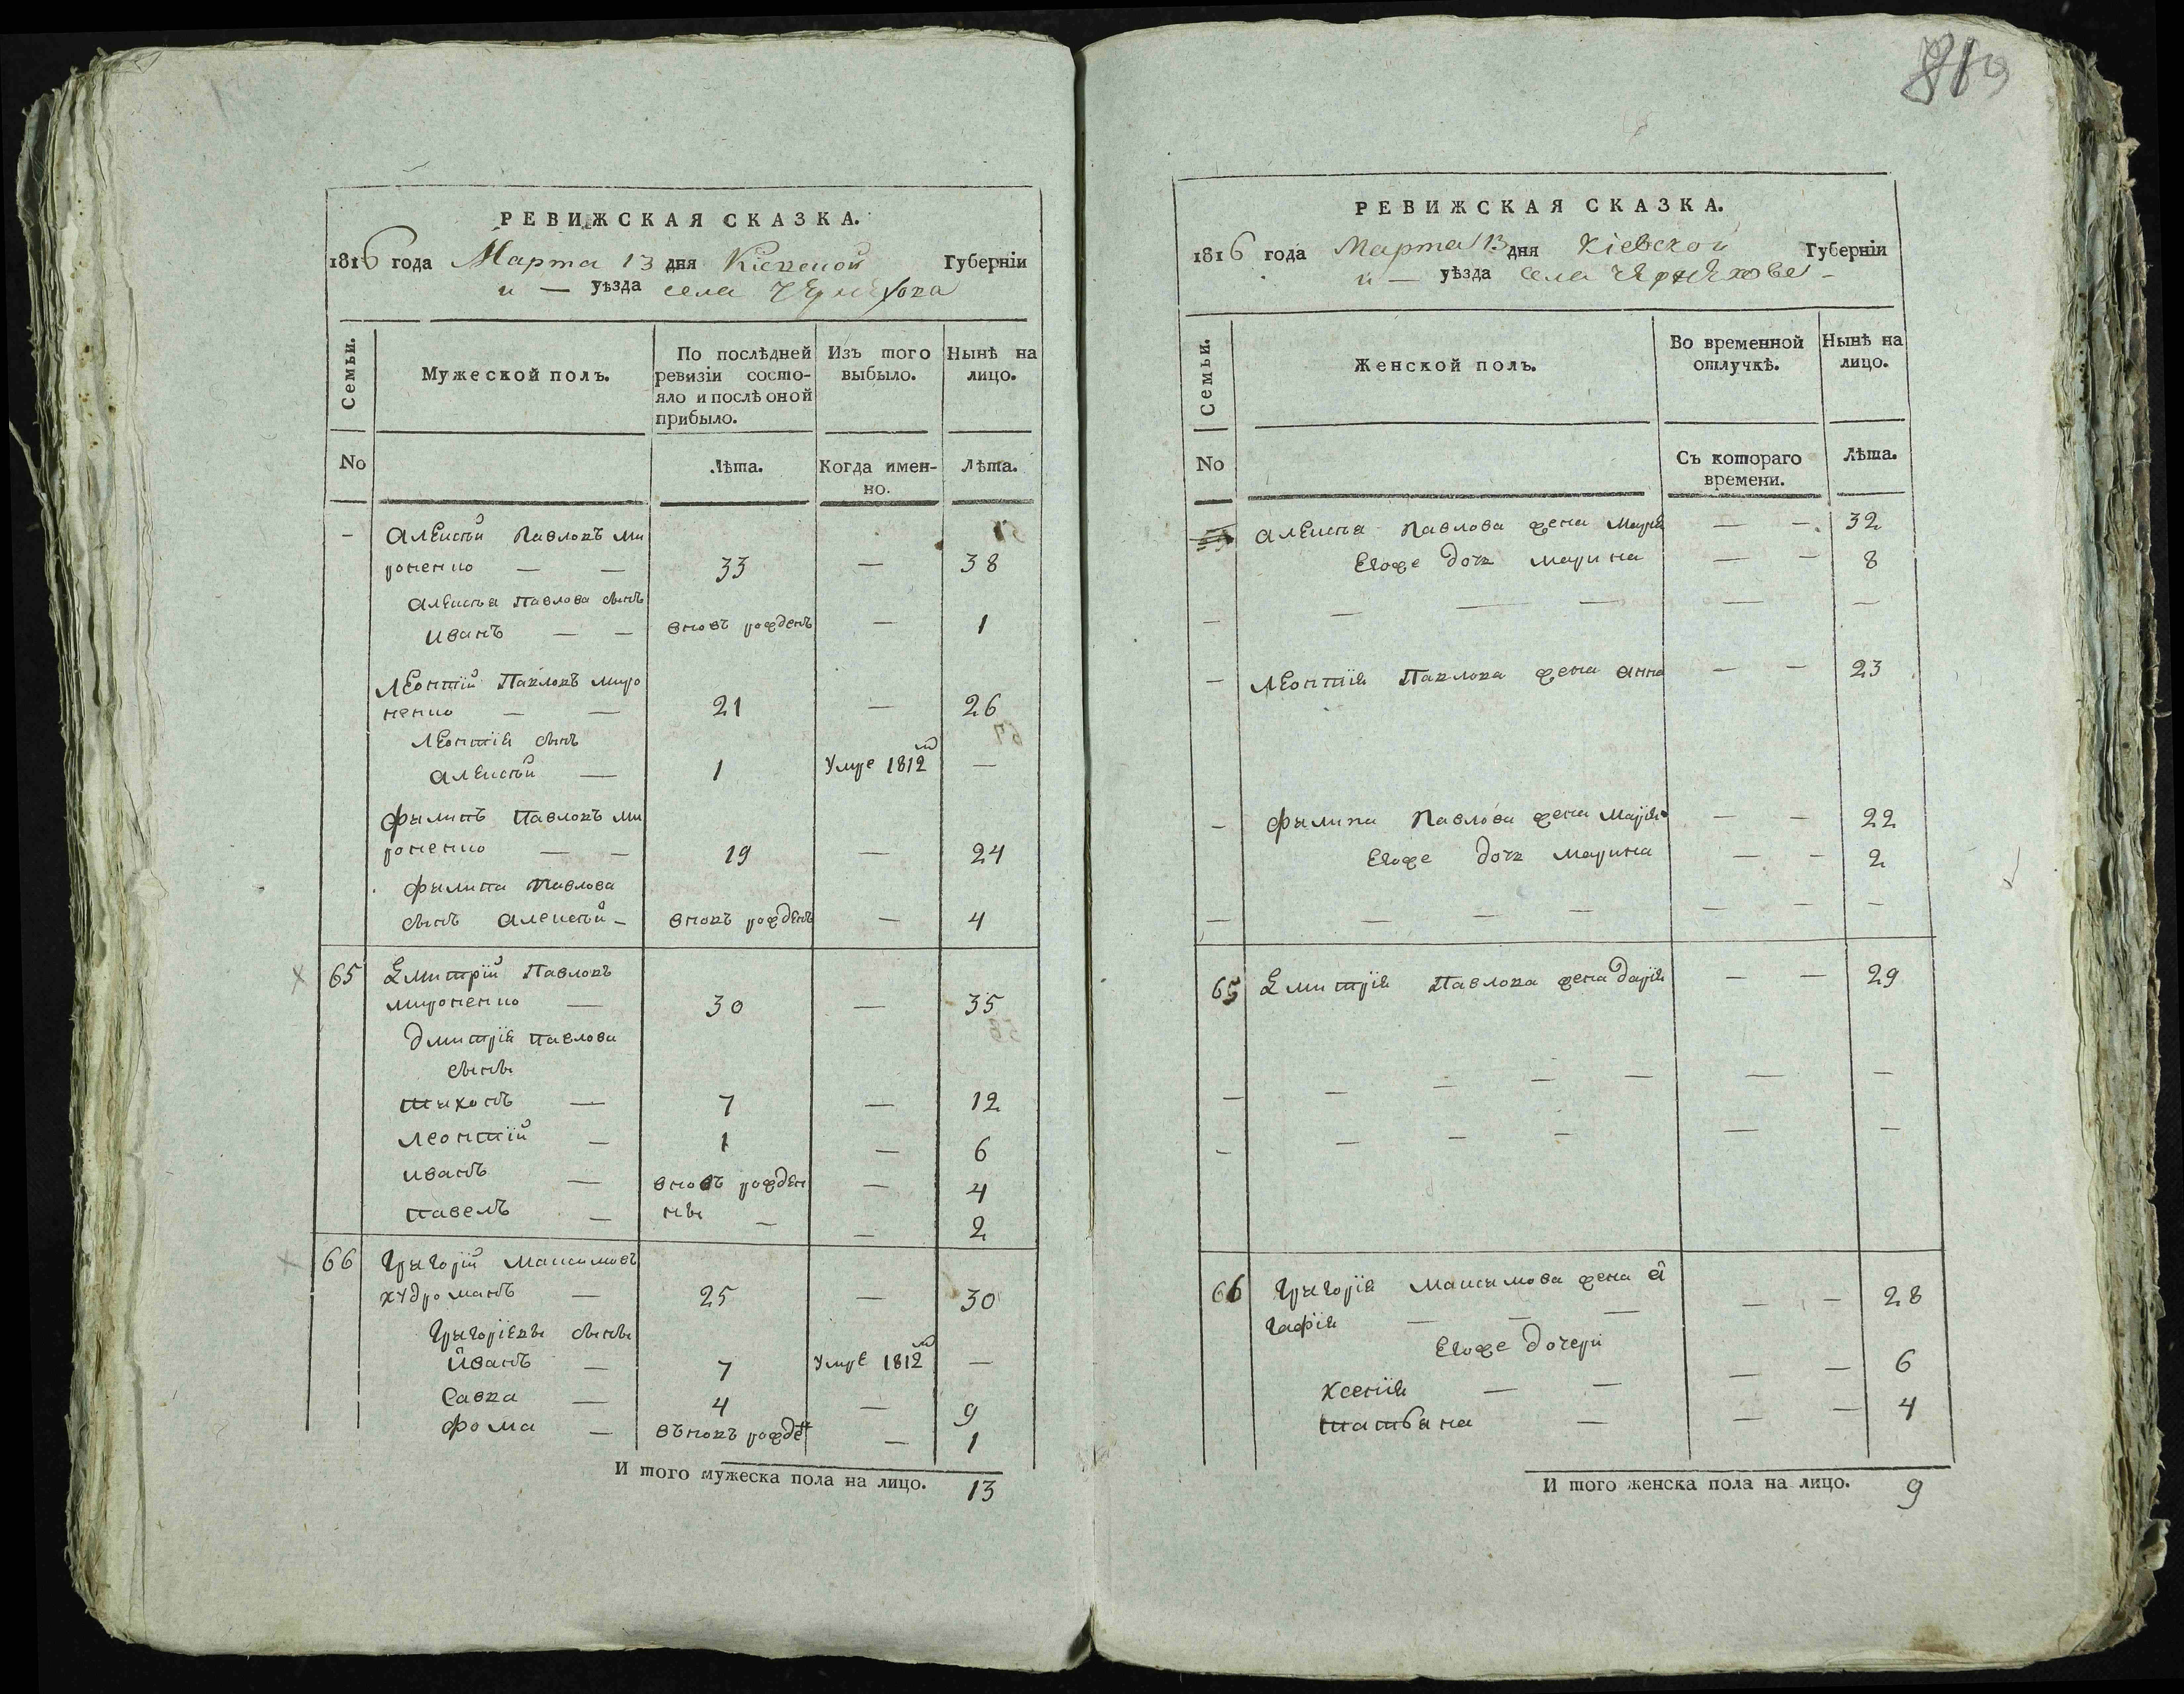 РЕВИЖСКАЯ СКАЗКА.
1816 года Марта 13 дня Кіевской Губерніи
и — уѣзда села
Семьи. Мужеской полъ. По послѣдней ревизіи состояло и послѣ оной прибыло. Изъ того выбыло. Нынѣ на лицо.
No Лѣта. Когда имен-но. Лѣта.
— Алексѣй Павловъ ми
роненко — — 33 — 38
Алексѣя Павлова сынъ
иванъ — — вновъ рожденъ — 1
Леонтій Павловъ миро
ненко — — 21 — 26
Леонтія сынъ
алексѣй — 1 Умре 1812 —
филипъ Павловъ ми
роненко — — 19 — 24
филипа Павлова
сынъ Алексѣй — вновъ рожденъ — 4
65 Дмитрій Павловъ
мироненко — 30 — 35
Дмитрія павлова
сыны
тихонъ — 7 — 12
леонтій — 1 — 6
иванъ — вновъ рожден — 4
павелъ — ны — — 2
66 Григорій Максимовъ
худроманъ — 25 — 30
Григоріевы сыны
иванъ — 7 Умре 1812 —
Савва — 4 — 9
фома — вновъ рожде — 1
И того мужеска пола на лицо. 13
РЕВИЖСКАЯ СКАЗКА.
1816 года Марта 13 дня Кіевской Губерніи
и — уѣзда села
Семьи. Женской полъ. Во временной отлучкѣ. Нынѣ на лицо.
No Съ котораго времени. Лѣта.
Алексѣя Павлова жена Марія — — 32
Егоже дочь марина — — 8
— — — — — —
— Леонтія Павлова жена анна — — 23
— филипа Павлова жена Марія — — 22
Егоже дочь марина — — 2
— — — — — — —
65 Дмитрія Павлова жена дарія — — 29
— — — — — — —
— — — — — —
66 Григорія Максимова жена а
гафія — — — — — 28
Егоже дочери
ксенія — — — — 6
татьяна — — — 4
И того женска пола на лицо. 9